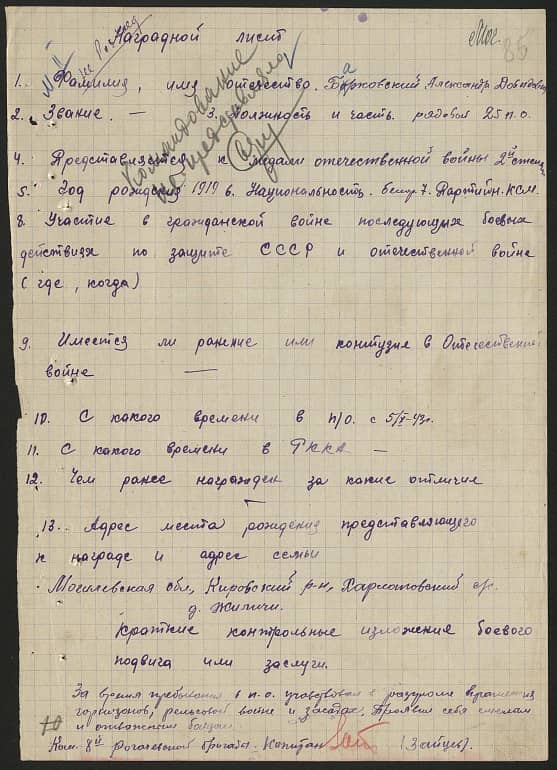 Наградной лист
85
1. Фамилия, имя, отечество. Барковский Александр Давидович
2. Звание. — 3. Должность и часть. рядовой 25 п.о.
4. Представляется к медали отечественной войны 2й степени
5. Год рождения 1919 6. Национальность. белор. 7. Партийн. КСМ.
8. Участие в гражданской войне последующих боевых
действиях по защите СССР и отечественной войне
(где, когда)
9. Имеется ли ранение или контузия в Отечественной
войне —
10. С какого времени в п/о. с 5/V-43г.
11. С какого времени в РККА —
12. Чем ранее награжден за какие отличия
—
13. Адрес места рождения представляющего
к награде и адрес семьи
Могилевская обл, Кировский р-н,
д. Жиличи.
Краткие контрольные изложения боевого
подвига или заслуги.
За время пребывания в п.о. участвовал в разгроме вражеских
гарнизонов, рельсовой войне и засадах. Проявил себя смелым
и отважным бойцом.
Ком. 8й Рогачевской бригады. Капитан (Зайцев).
Командование
не представляло